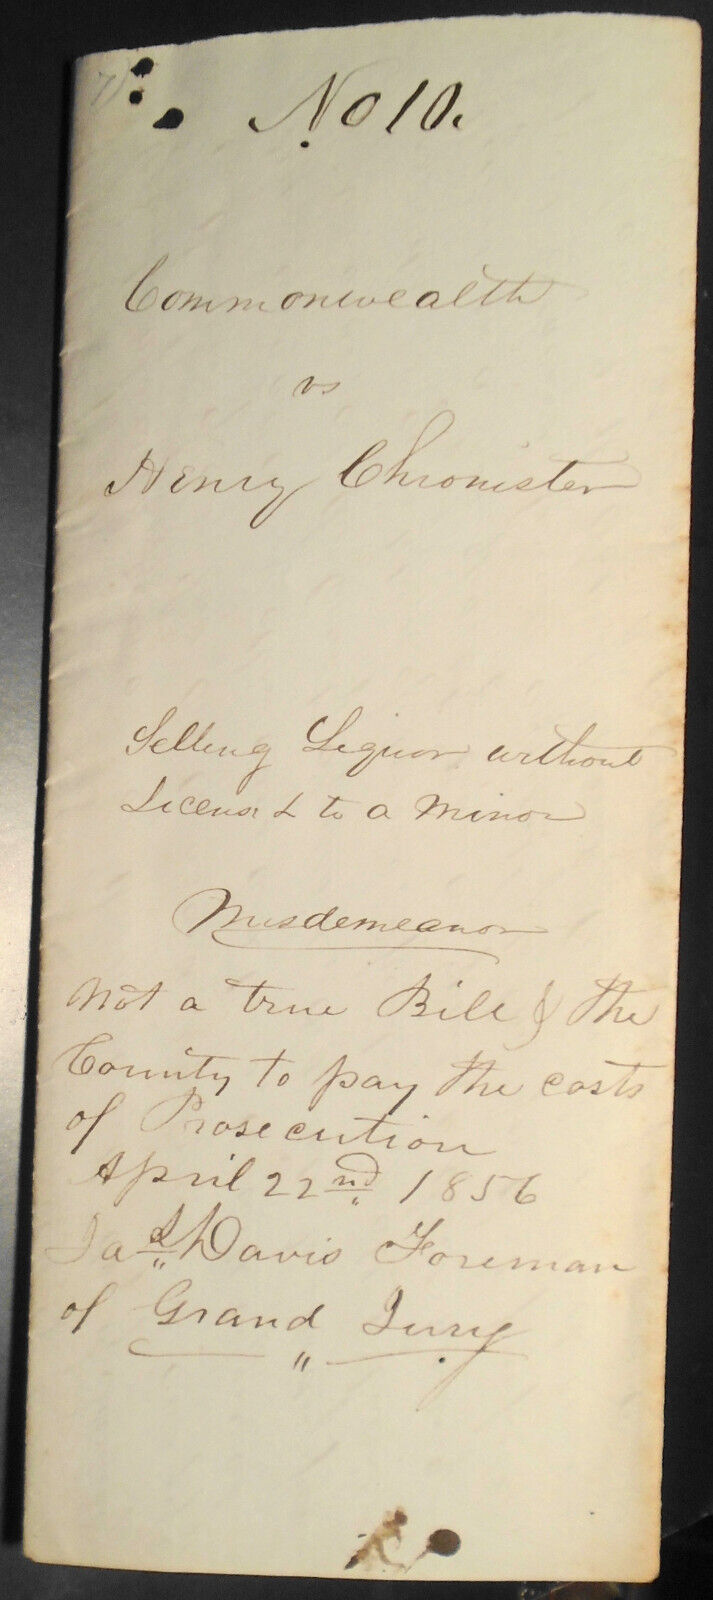 No 10.
Commonwealth
vs
Henry Chronister
Selling Liquor without
License & to a Minor
Misdemeanor
Not a true Bill & the
County to pay the costs
of Prosecution
April 22nd 1856
Jas Davis Foreman
of Grand Jury